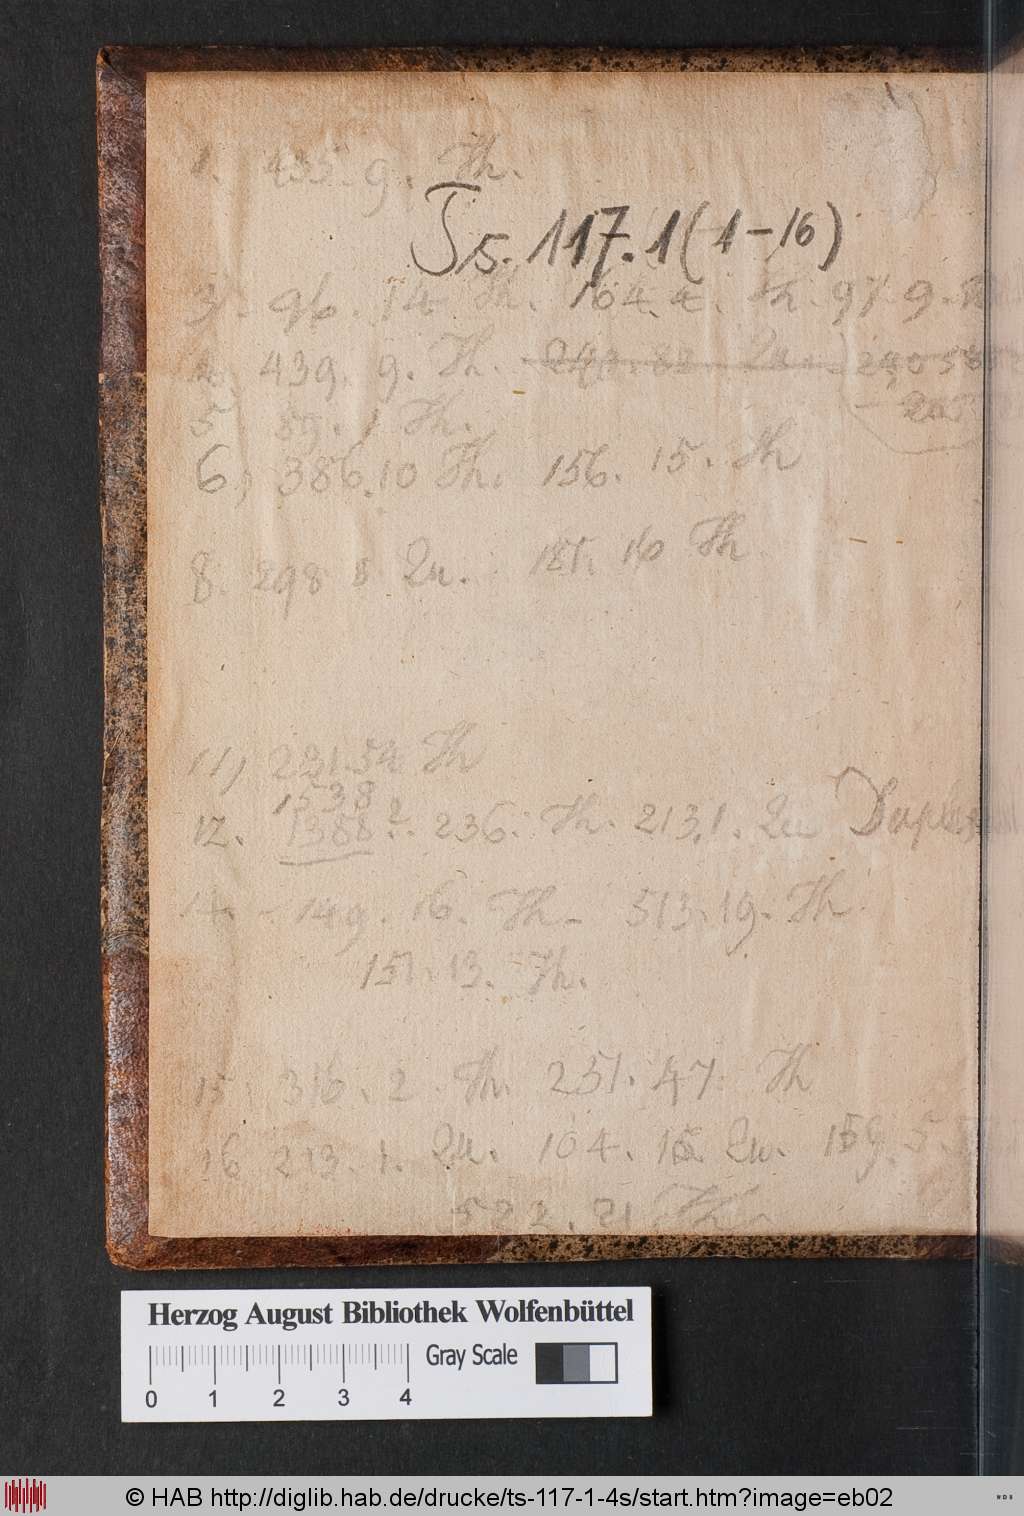 1. 435. 9. Th.
Ts. 117. 1 (1-16)
3. 96. 14 Th. 164. 4. Th. 97. 9.
439. 9. Th. 240. 82 Qu.
5 89. 1 Th.
6) 386. 10 Th. 156. 15. Th
8. 298 8 Qu. 181. 16 Th
11) 231. 54 Th
1538
12. 1388. 2. 236. Th. 213. 1. Qu
14. - 149. 16. Th - 513. 19. Th.
151. 13. Th.
15. 316. 2. Th. 251. 47. Th
16 213. 1. Qu. 104. 15. Qu. 159. 5.
522. 21. Th
Herzog August Bibliothek Wolfenbüttel
Gray Scale
0 1 2 3 4
© HAB http://diglib.hab.de/drucke/ts-117-1-4s/start.htm?image=eb02